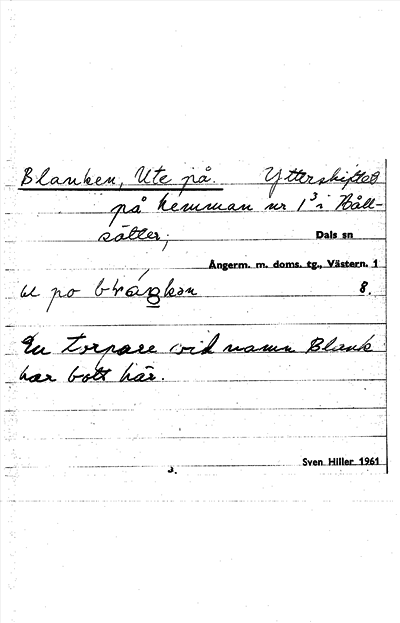 Blanken, Ute på. Ytterskiftet
på hemman nr 1³ i Håll-
sätter;
Dals sn
Ångerm. m. doms. tg., Västern. 1
8.
En torpare vid namn Blank
har bott här.
Sven Hiller 1961
3.